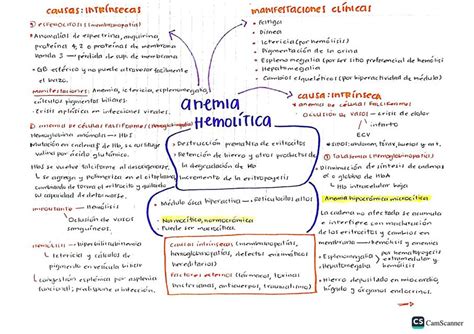 CAUSAS: INTRÍNSECAS
① ESFEROCITOSIS (membranopatía)
• Anomalías de espectrina, anquirina,
proteínas 4,2 o proteínas de membrana
banda 3 → pérdida de sup. de membrana
• GB esférico y no puede atravesar fácilmente
el bazo.
Manifestaciones: Anemia, ictericia, esplenomegalia,
cálculos pigmentos biliares.
• Crisis aplástica en infecciones virales.
② anemia de células falciformes (Hemoglobinopatía)
Hemoglobina anómala → HbS
Mutación en cadena β de Hb, se sustituye
valina por ácido glutámico.
HbS se vuelve falciforme al desoxigenarse.
↳ se agrega y polimeriza en el citoplasma
cambiando de forma el eritrocito y quitando
su capacidad de deformarse.
importante → Hemólisis
Oclusión de vasos
sanguíneos.
HEMÓLISIS → hiperbilirrubinemia
↳ ictericia y cálculo de
pigmento en la bilis.
↳ congestión esplénica por asplenia
funcional; predispone a infección.
anemia
HEMOLÍTICA
• Destrucción prematura de eritrocitos
• Retención de hierro y otros productos de
la degradación de Hb
• Incremento de la eritropoyesis
• Médula ósea hiperactiva → Reticulocitos altos
• Normocítica, normocrómica
• Puede ser macrocítica
Causas intrínsecas (membranopatías,
hemoglobinopatías, defectos enzimáticos
hereditarios)
Factores externos (fármacos, toxinas
bacterianas, anticuerpos, traumatismo)
MANIFESTACIONES CLÍNICAS
• Fatiga
• Disnea
• Ictericia (por hemólisis)
• Pigmentación de la orina
• Esplenomegalia (por ser sitio preferencial de hemólisis
• Hepatomegalia
• Cambios esqueléticos (por hiperactividad de médula)
CAUSA: INTRÍNSECA
• anemia DE CÉLULAS FALCIFORMES
OCLUSIÓN DE VASOS → crisis de dolor
infarto
ECV
③ TALASEMIAS (hemoglobinopatías)
Disminución de síntesis de cadenas
α o globina de HbA
↳ Hb intracelular baja
Anemia hipocrómica microcítica
La cadena no afectada se acumula
e interfiere con maduración de
los eritrocitos y cambios en
membrana → hemólisis y anemia
• Esplenomegalia
• Hepatomegalia
por hematopoyesis
extramedular y
hemólisis.
• Hierro depositado en miocardio,
hígado y órganos endocrinos.
CS CamScanner